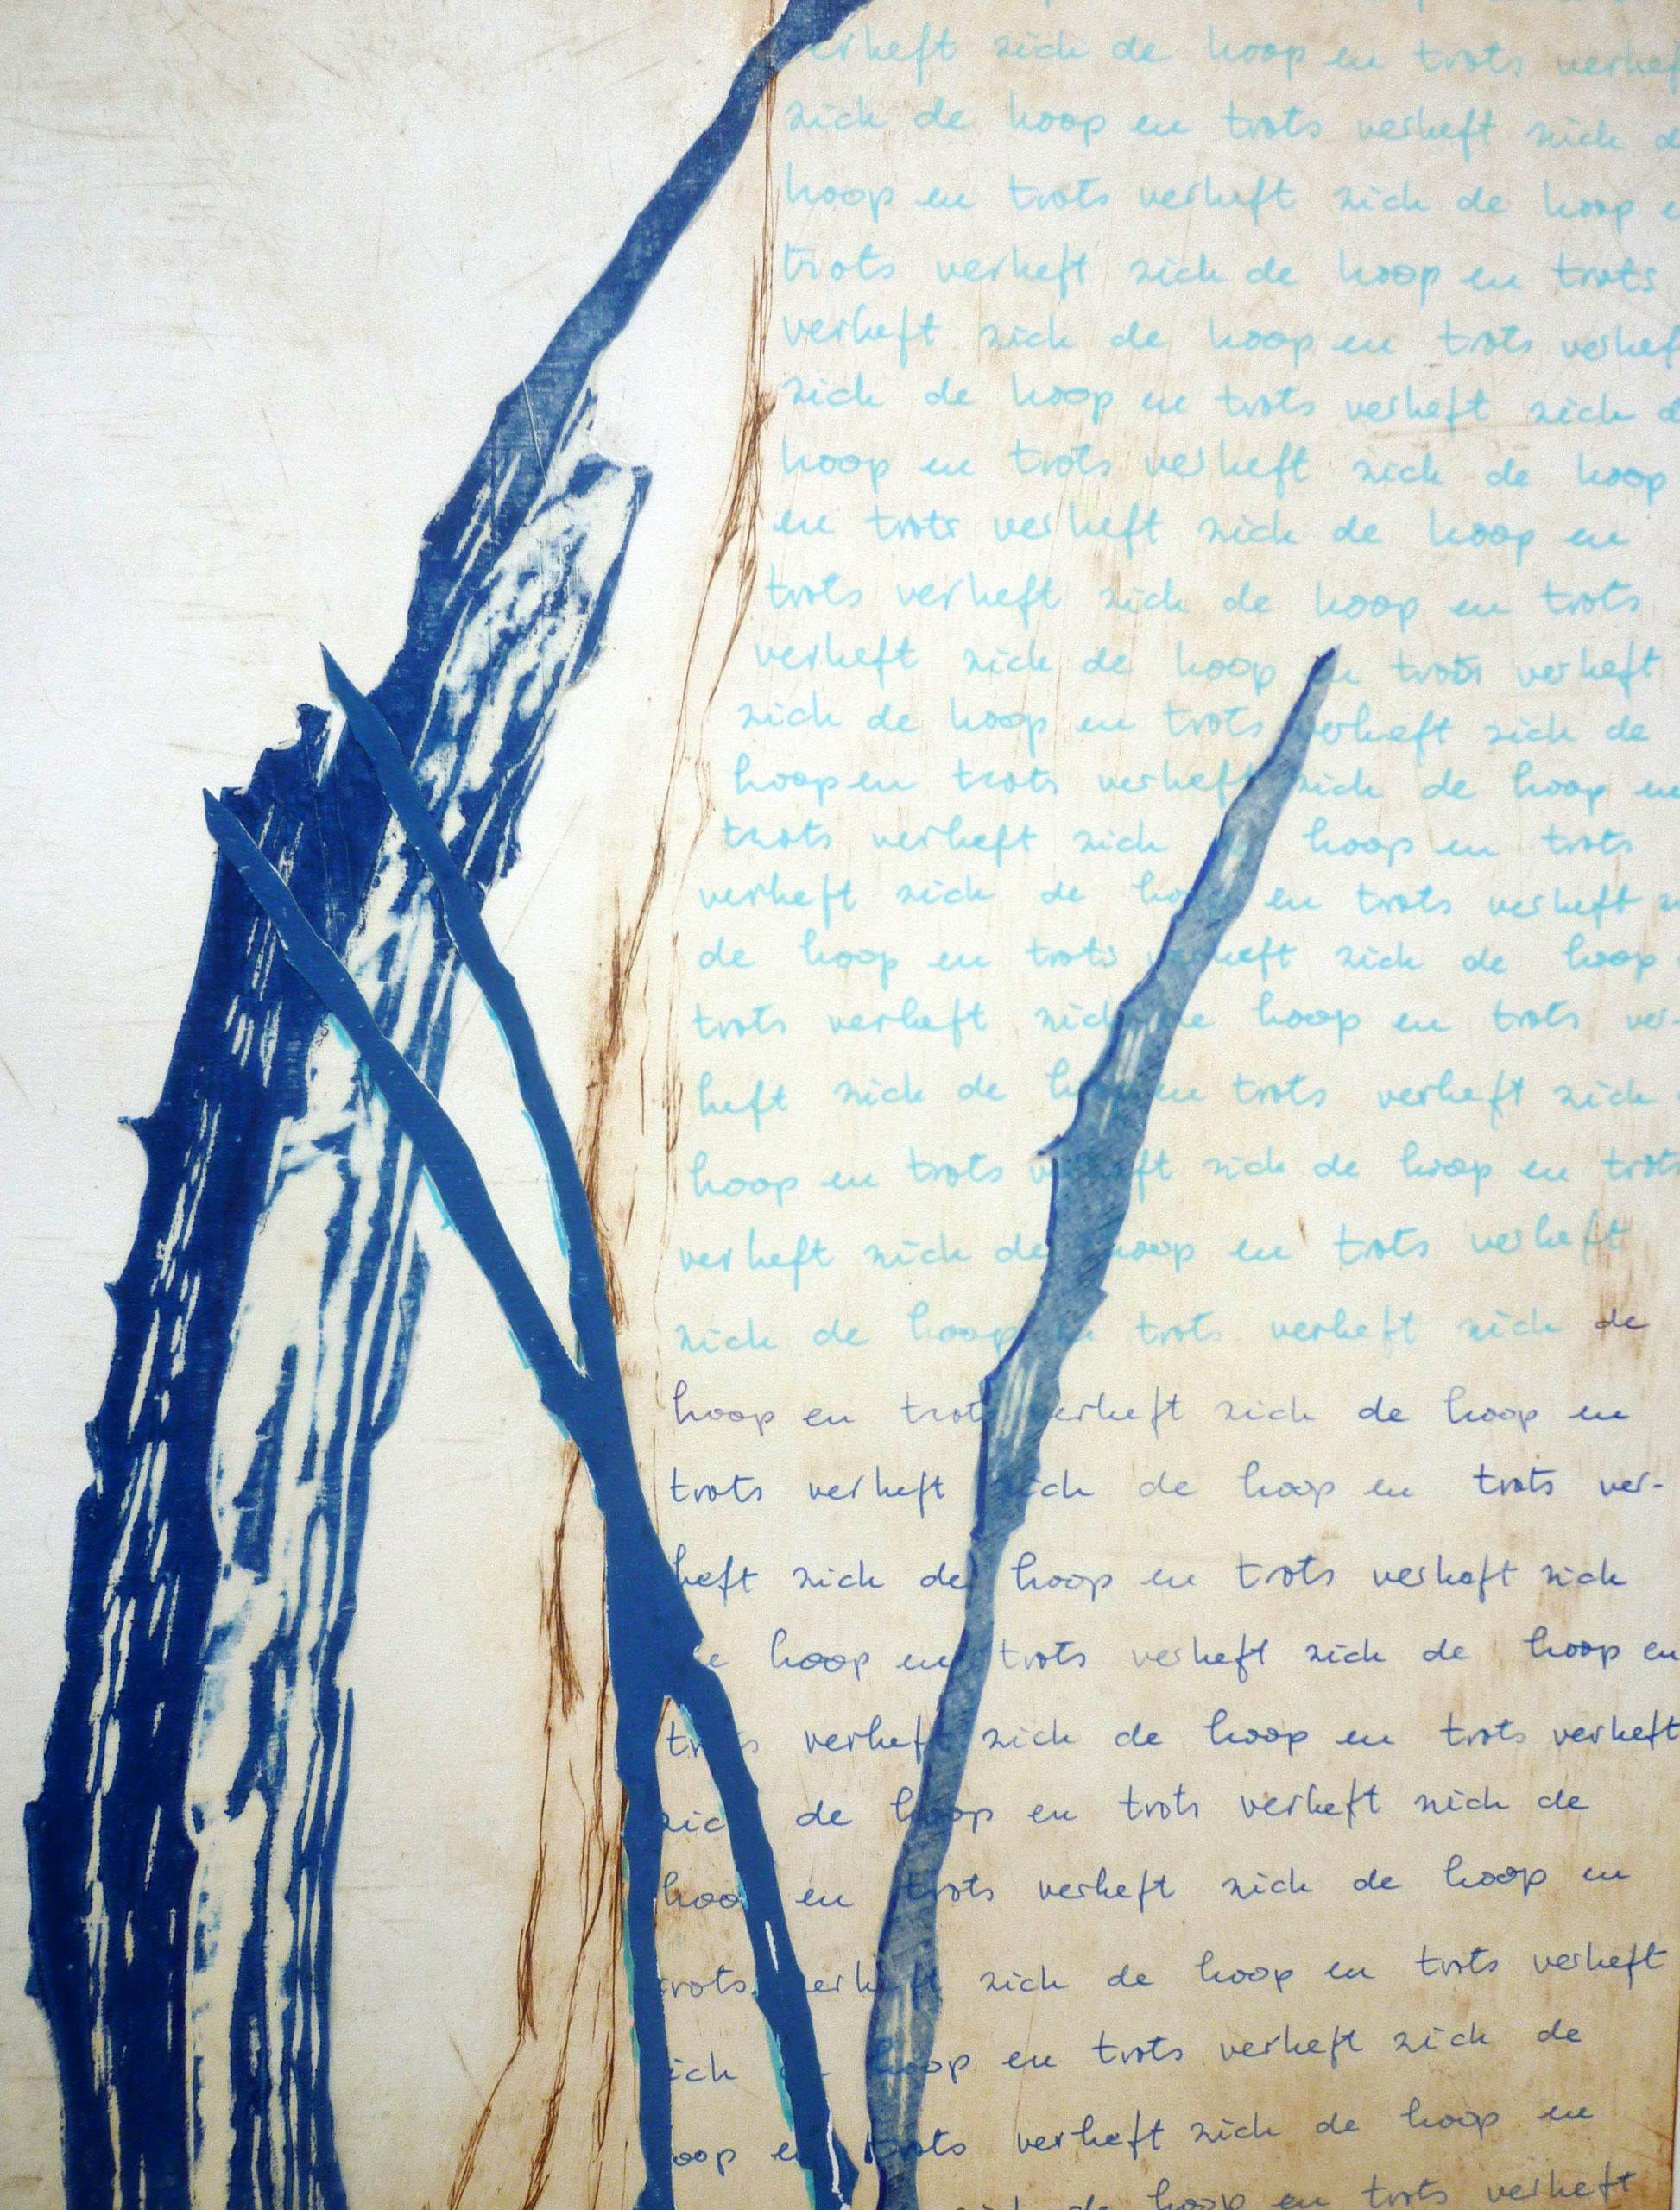 verheft zich de hoop en trots verhef
zich de hoop en trots verheft zich d
hoop en trots verheft zich de hoop e
trots verheft zich de hoop en trots
verheft zich de hoop en trots verhef
zich de hoop en trots verheft zich d
hoop en trots verheft zich de hoop
en trots verheft zich de hoop en
trots verheft zich de hoop en trots
verheft zich de hoop en trots verheft
zich de hoop en trots verheft zich de
hoop en trots verheft zich de hoop en
trots verheft zich hoop en trots
verheft zich de hoop en trots verheft z
de hoop en trots verheft zich de hoop
trots verheft zich de hoop en trots ver-
heft zich de hoop en trots verheft zich
hoop en trots verheft zich de hoop en trots
verheft zich de hoop en trots verheft
zich de hoop en trots verheft zich de
hoop en trots verheft zich de hoop en
trots verheft zich de hoop en trots ver-
heft zich de hoop en trots verheft zich
de hoop en trots verheft zich de hoop en
trots verheft zich de hoop en trots verheft
zich de hoop en trots verheft zich de
hoop en trots verheft zich de hoop en
trots verheft zich de hoop en trots verheft
zich de hoop en trots verheft zich de
hoop en trots verheft zich de hoop en
zich de hoop en trots verheft